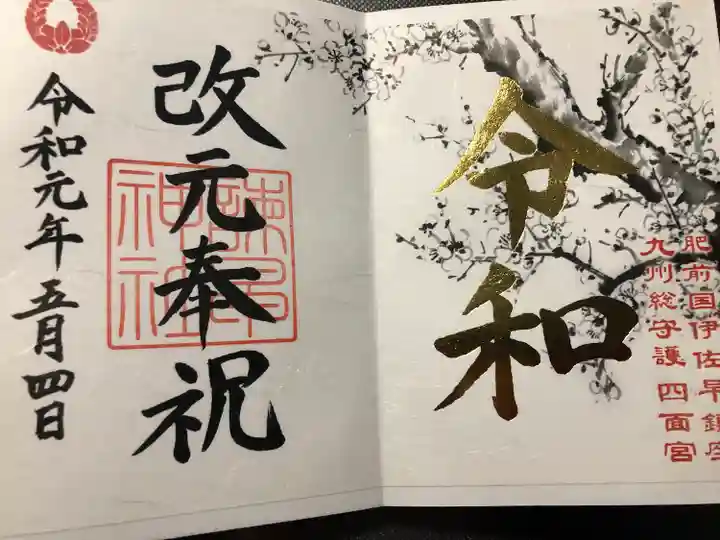 令和
肥前国伊佐早鎮座
九州総守護 四面宮
改元奉祝
諫早神社
令和元年 五月四日